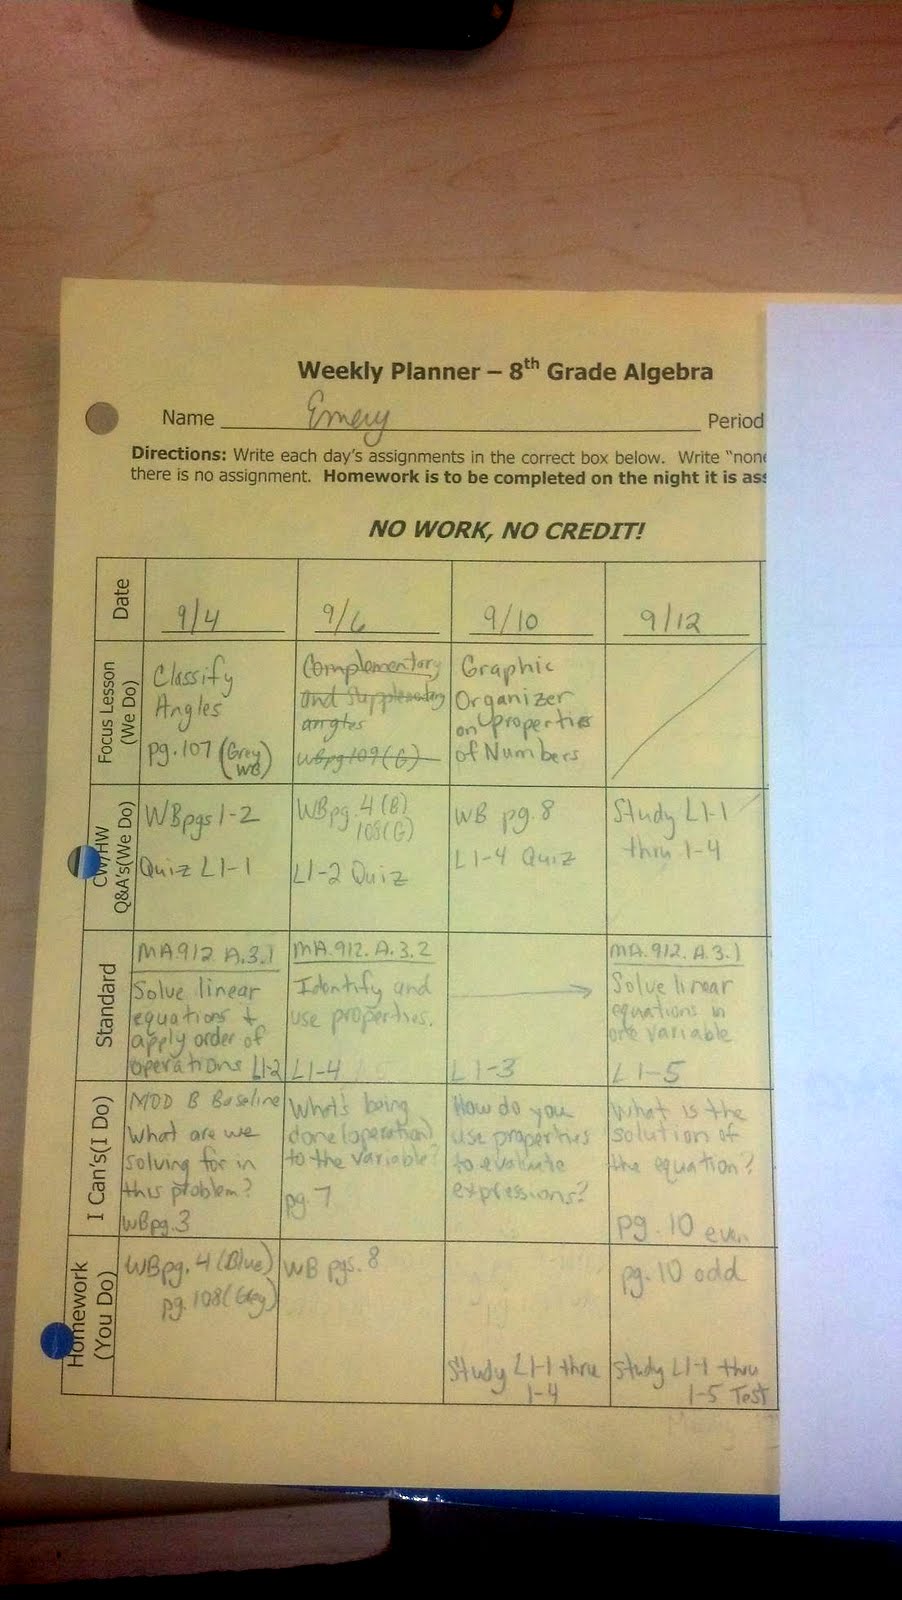 Weekly Planner – 8th Grade Algebra
Name Emery Period
Directions: Write each day's assignments in the correct box below. Write "none
there is no assignment. Homework is to be completed on the night it is ass
NO WORK, NO CREDIT!
Date
9/4
9/6
9/10
9/12
Focus Lesson
(We Do)
Classify
Angles
pg. 107 (Grey
WB)
Complementary
and Supplementary
angles
WBpg 109 (G)
Graphic
Organizer
on properties
of Numbers
CW/HW
Q&A's(We Do)
WBpgs 1-2
Quiz L1-1
WBpg. 4 (B)
108(G)
L1-2 Quiz
WB pg. 8
L1-4 Quiz
Study L1-1
thru 1-4
Standard
MA.912 A.3.1
Solve linear
equations +
apply order of
operations L1-2
MA.912. A.3.2
Identify and
use properties.
L1-4
L1-3
MA.912. A.3.1
Solve linear
equations in
one variable
L1-5
I Can's(I Do)
MOD B Baseline
What are we
solving for in
this problem?
WBpg.3
What's being
done (operation)
to the variable?
pg. 7
How do you
use properties
to evaluate
expressions?
What is the
solution of
the equation?
pg. 10 even
Homework
(You Do)
WBpg. 4 (Blue)
pg. 108 (Grey)
WB pgs. 8
Study L1-1 thru
1-4
pg. 10 odd
Study L1-1 thru
1-5 Test